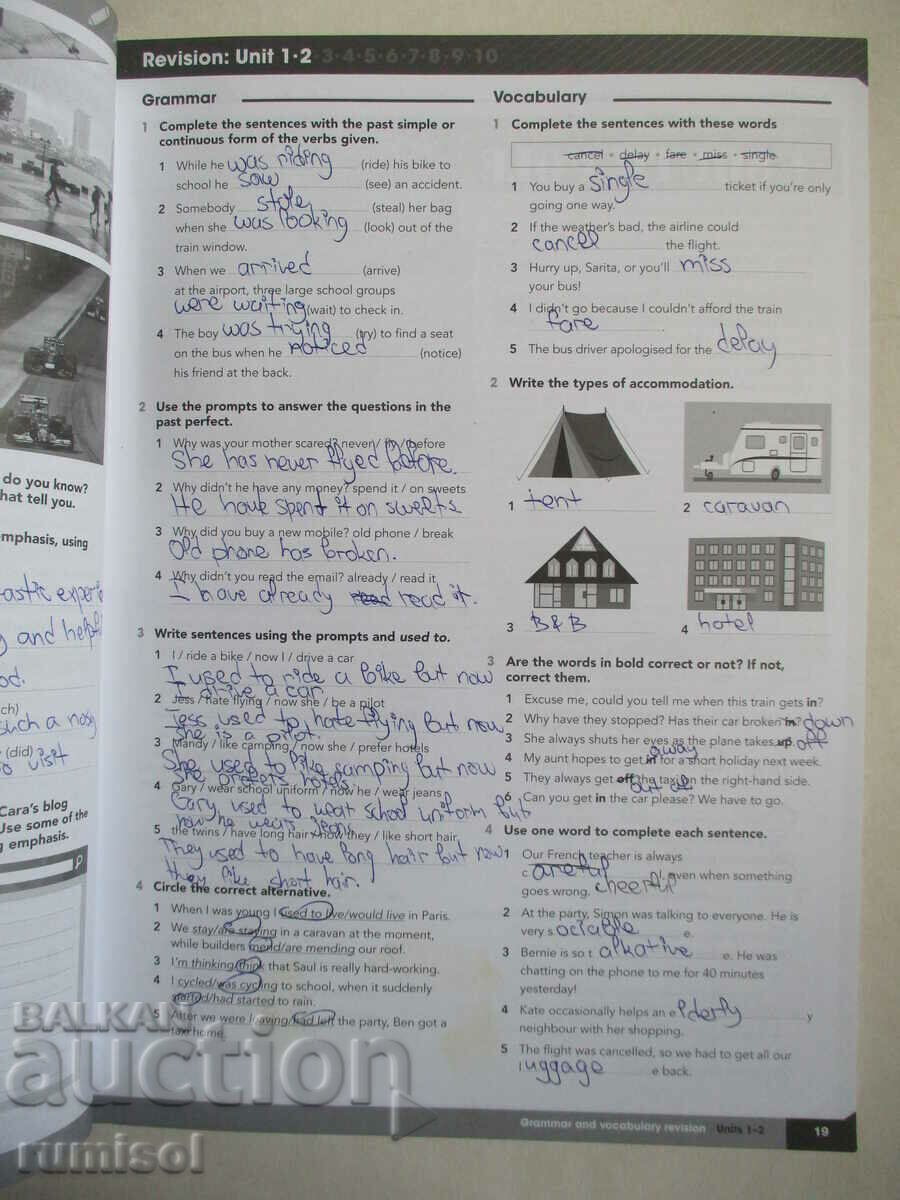 Revision: Unit 1·2·3·4·5·6·7·8·9·10
Grammar
1 Complete the sentences with the past simple or
continuous form of the verbs given.
1 While he was riding (ride) his bike to
school he saw (see) an accident.
2 Somebody stole (steal) her bag
when she was looking (look) out of the
train window.
3 When we arrived (arrive)
at the airport, three large school groups
were waiting (wait) to check in.
4 The boy was trying (try) to find a seat
on the bus when he noticed (notice)
his friend at the back.
2 Use the prompts to answer the questions in the
past perfect.
1 Why was your mother scared? never / fly / before
She has never flyed before.
2 Why didn't he have any money? spend it / on sweets
He have spend it on sweets
3 Why did you buy a new mobile? old phone / break
Old phone has broken.
4 Why didn't you read the email? already / read it
I have already read read it.
3 Write sentences using the prompts and used to.
1 I / ride a bike / now I / drive a car
I used to ride a bike but now
I drive a car
2 Jess / hate flying / now she / be a pilot
Jess used to hate flying but now
she is a pilot.
3 Mandy / like camping / now she / prefer hotels
She used to like camping but now
she prefers hotels
4 Gary / wear school uniform / now he / wear jeans
Gary used to wear school uniform but
now he wears jeans
5 the twins / have long hair / now they / like short hair
They used to have long hair but now
they like short hair.
4 Circle the correct alternative.
1 When I was young I used to live/would live in Paris.
2 We stay/are staying in a caravan at the moment,
while builders mend/are mending our roof.
3 I'm thinking/think that Saul is really hard-working.
4 I cycled/was cycling to school, when it suddenly
started/had started to rain.
5 After we were leaving/had left the party, Ben got a
taxi home.
Vocabulary
1 Complete the sentences with these words
cancel • delay • fare • miss • single
1 You buy a single ticket if you're only
going one way.
2 If the weather's bad, the airline could
cancel the flight.
3 Hurry up, Sarita, or you'll miss
your bus!
4 I didn't go because I couldn't afford the train
fare
5 The bus driver apologised for the delay
2 Write the types of accommodation.
1 tent
2 caravan
3 B&B
4 hotel
3 Are the words in bold correct or not? If not,
correct them.
1 Excuse me, could you tell me when this train gets in?
2 Why have they stopped? Has their car broken in? down
3 She always shuts her eyes as the plane takes up. off
away
4 My aunt hopes to get in for a short holiday next week.
5 They always get off the taxi on the right-hand side.
out of
6 Can you get in the car please? We have to go.
4 Use one word to complete each sentence.
1 Our French teacher is always
c areful l, even when something
goes wrong. cheerful
2 At the party, Simon was talking to everyone. He is
very s ociable e.
3 Bernie is so t alkative e. He was
chatting on the phone to me for 40 minutes
yesterday!
4 Kate occasionally helps an e lderly y
neighbour with her shopping.
5 The flight was cancelled, so we had to get all our
luggage e back.
Grammar and vocabulary revision Units 1–2 19
do you know?
hat tell you.
mphasis, using
astic experi
and helpf
od.
ch)
such a nosy
(did)
to visit
Cara's blog
Use some of the
g emphasis.
BALKAN
auction
rumisol